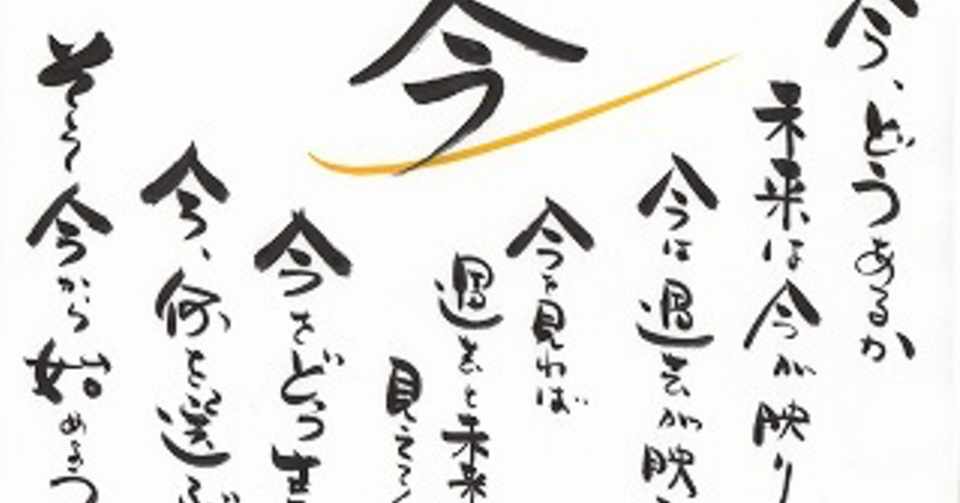 今
今、どうあるか
未来は今が映り
今は過去が映
今を見れば
過去と未来
見えて
今をどう
今、何を選ぶ
今から始めよう